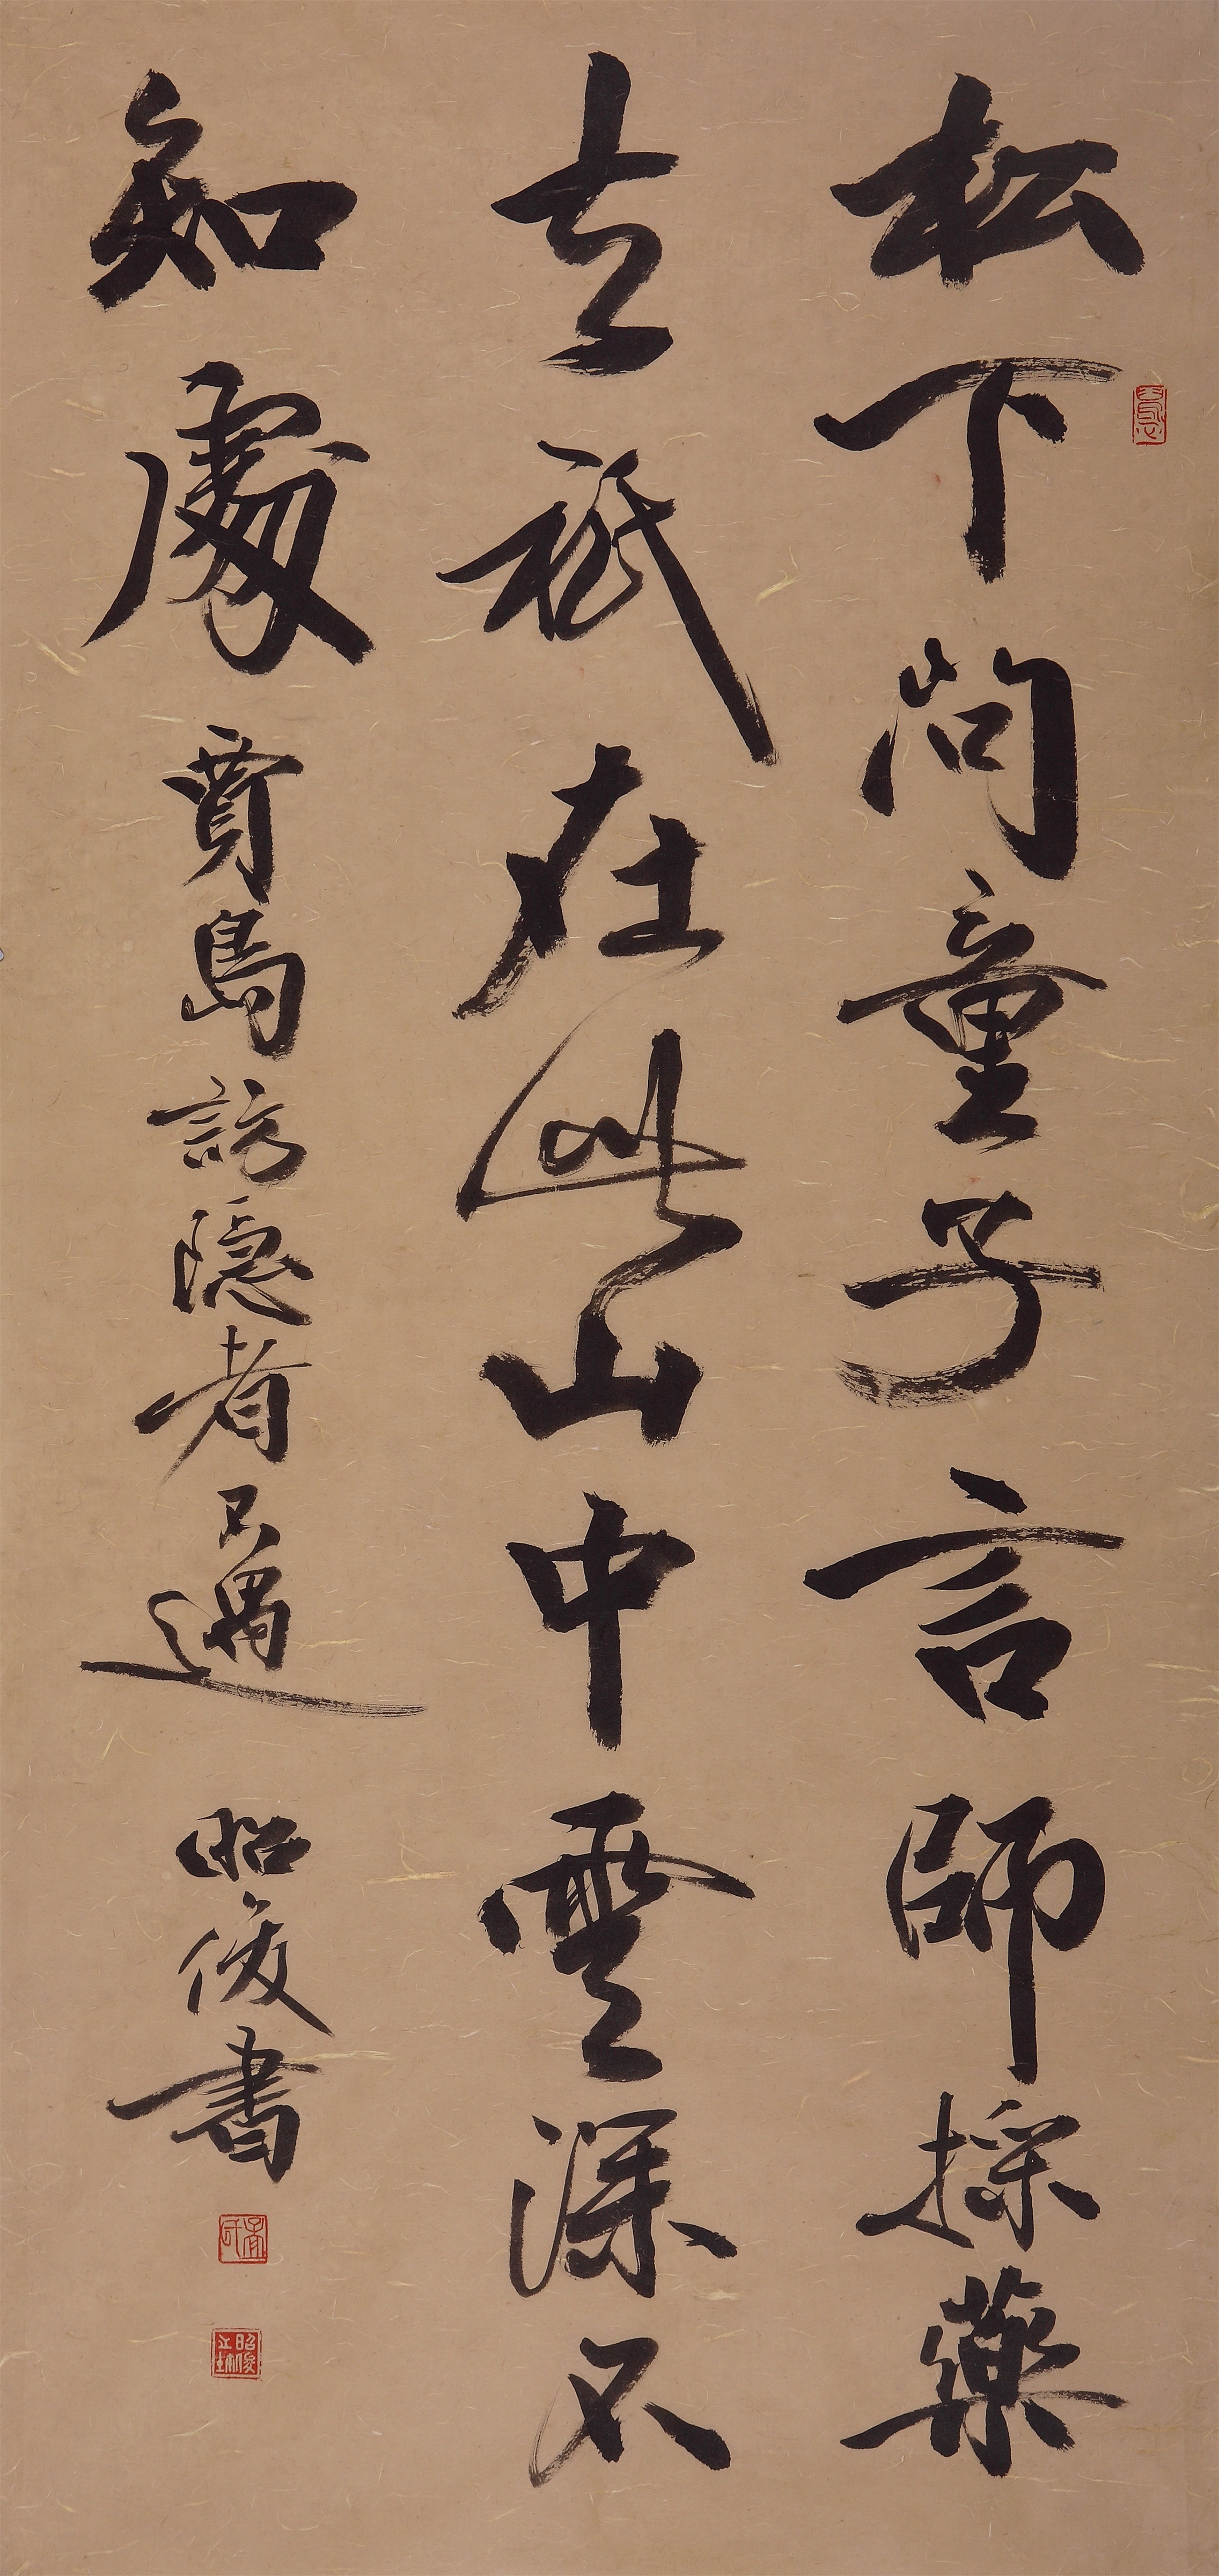 松下問童子言師採藥
去祗在此山中雲深不
知處 賈島訪隱者不遇 昭俊書